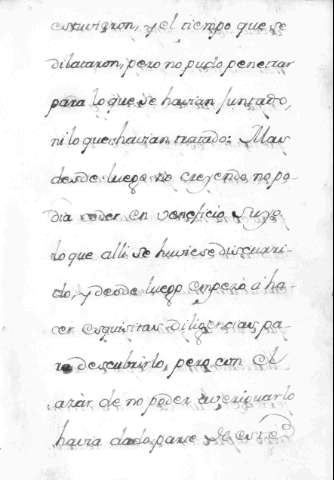 estuvieron, y el tiempo que se
dilataron, pero no pudo penetrar
para lo que se havian juntado,
ni lo que havian tratado: Mas
desde luego no creyendo po
dia ceder en veneficio suyo
lo que alli se huviese discurri-
do, y desde luego empezó á ha-
cer esquisitas diligencias pa-
ra descubrirlo, pero con el
azár de no poder averiguarlo
havia dado parte